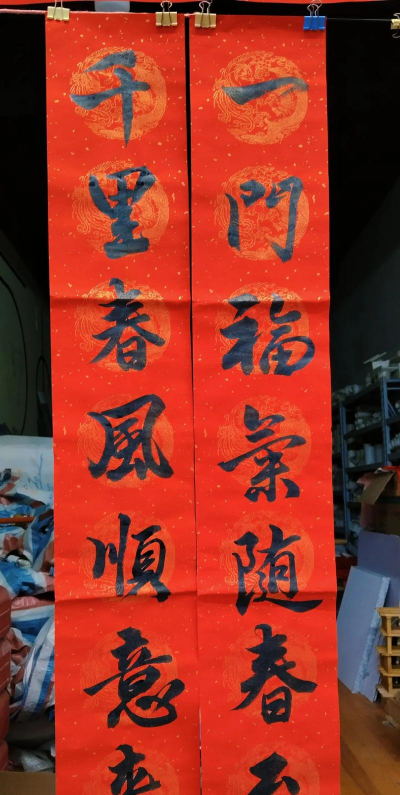 一門福氣随春
千里春風順意